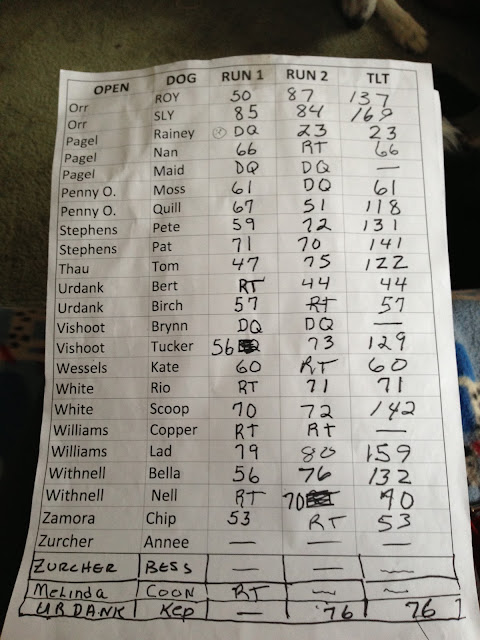 OPEN DOG RUN 1 RUN 2 TLT
Orr ROY 50 87 137
Orr SLY 85 84 169
Pagel Rainey DQ 23 23
Pagel Nan 66 RT 66
Pagel Maid DQ DQ —
Penny O. Moss 61 DQ 61
Penny O. Quill 67 51 118
Stephens Pete 59 72 131
Stephens Pat 71 70 141
Thau Tom 47 75 122
Urdank Bert RT 44 44
Urdank Birch 57 RT 57
Vishoot Brynn DQ DQ —
Vishoot Tucker 56 73 129
Wessels Kate 60 RT 60
White Rio RT 71 71
White Scoop 70 72 142
Williams Copper RT RT —
Williams Lad 79 80 159
Withnell Bella 56 76 132
Withnell Nell RT 70 70
Zamora Chip 53 RT 53
Zurcher Annee — — —
ZURCHER BESS — — —
MeLinda COON RT — —
URDANK Kep — 76 76